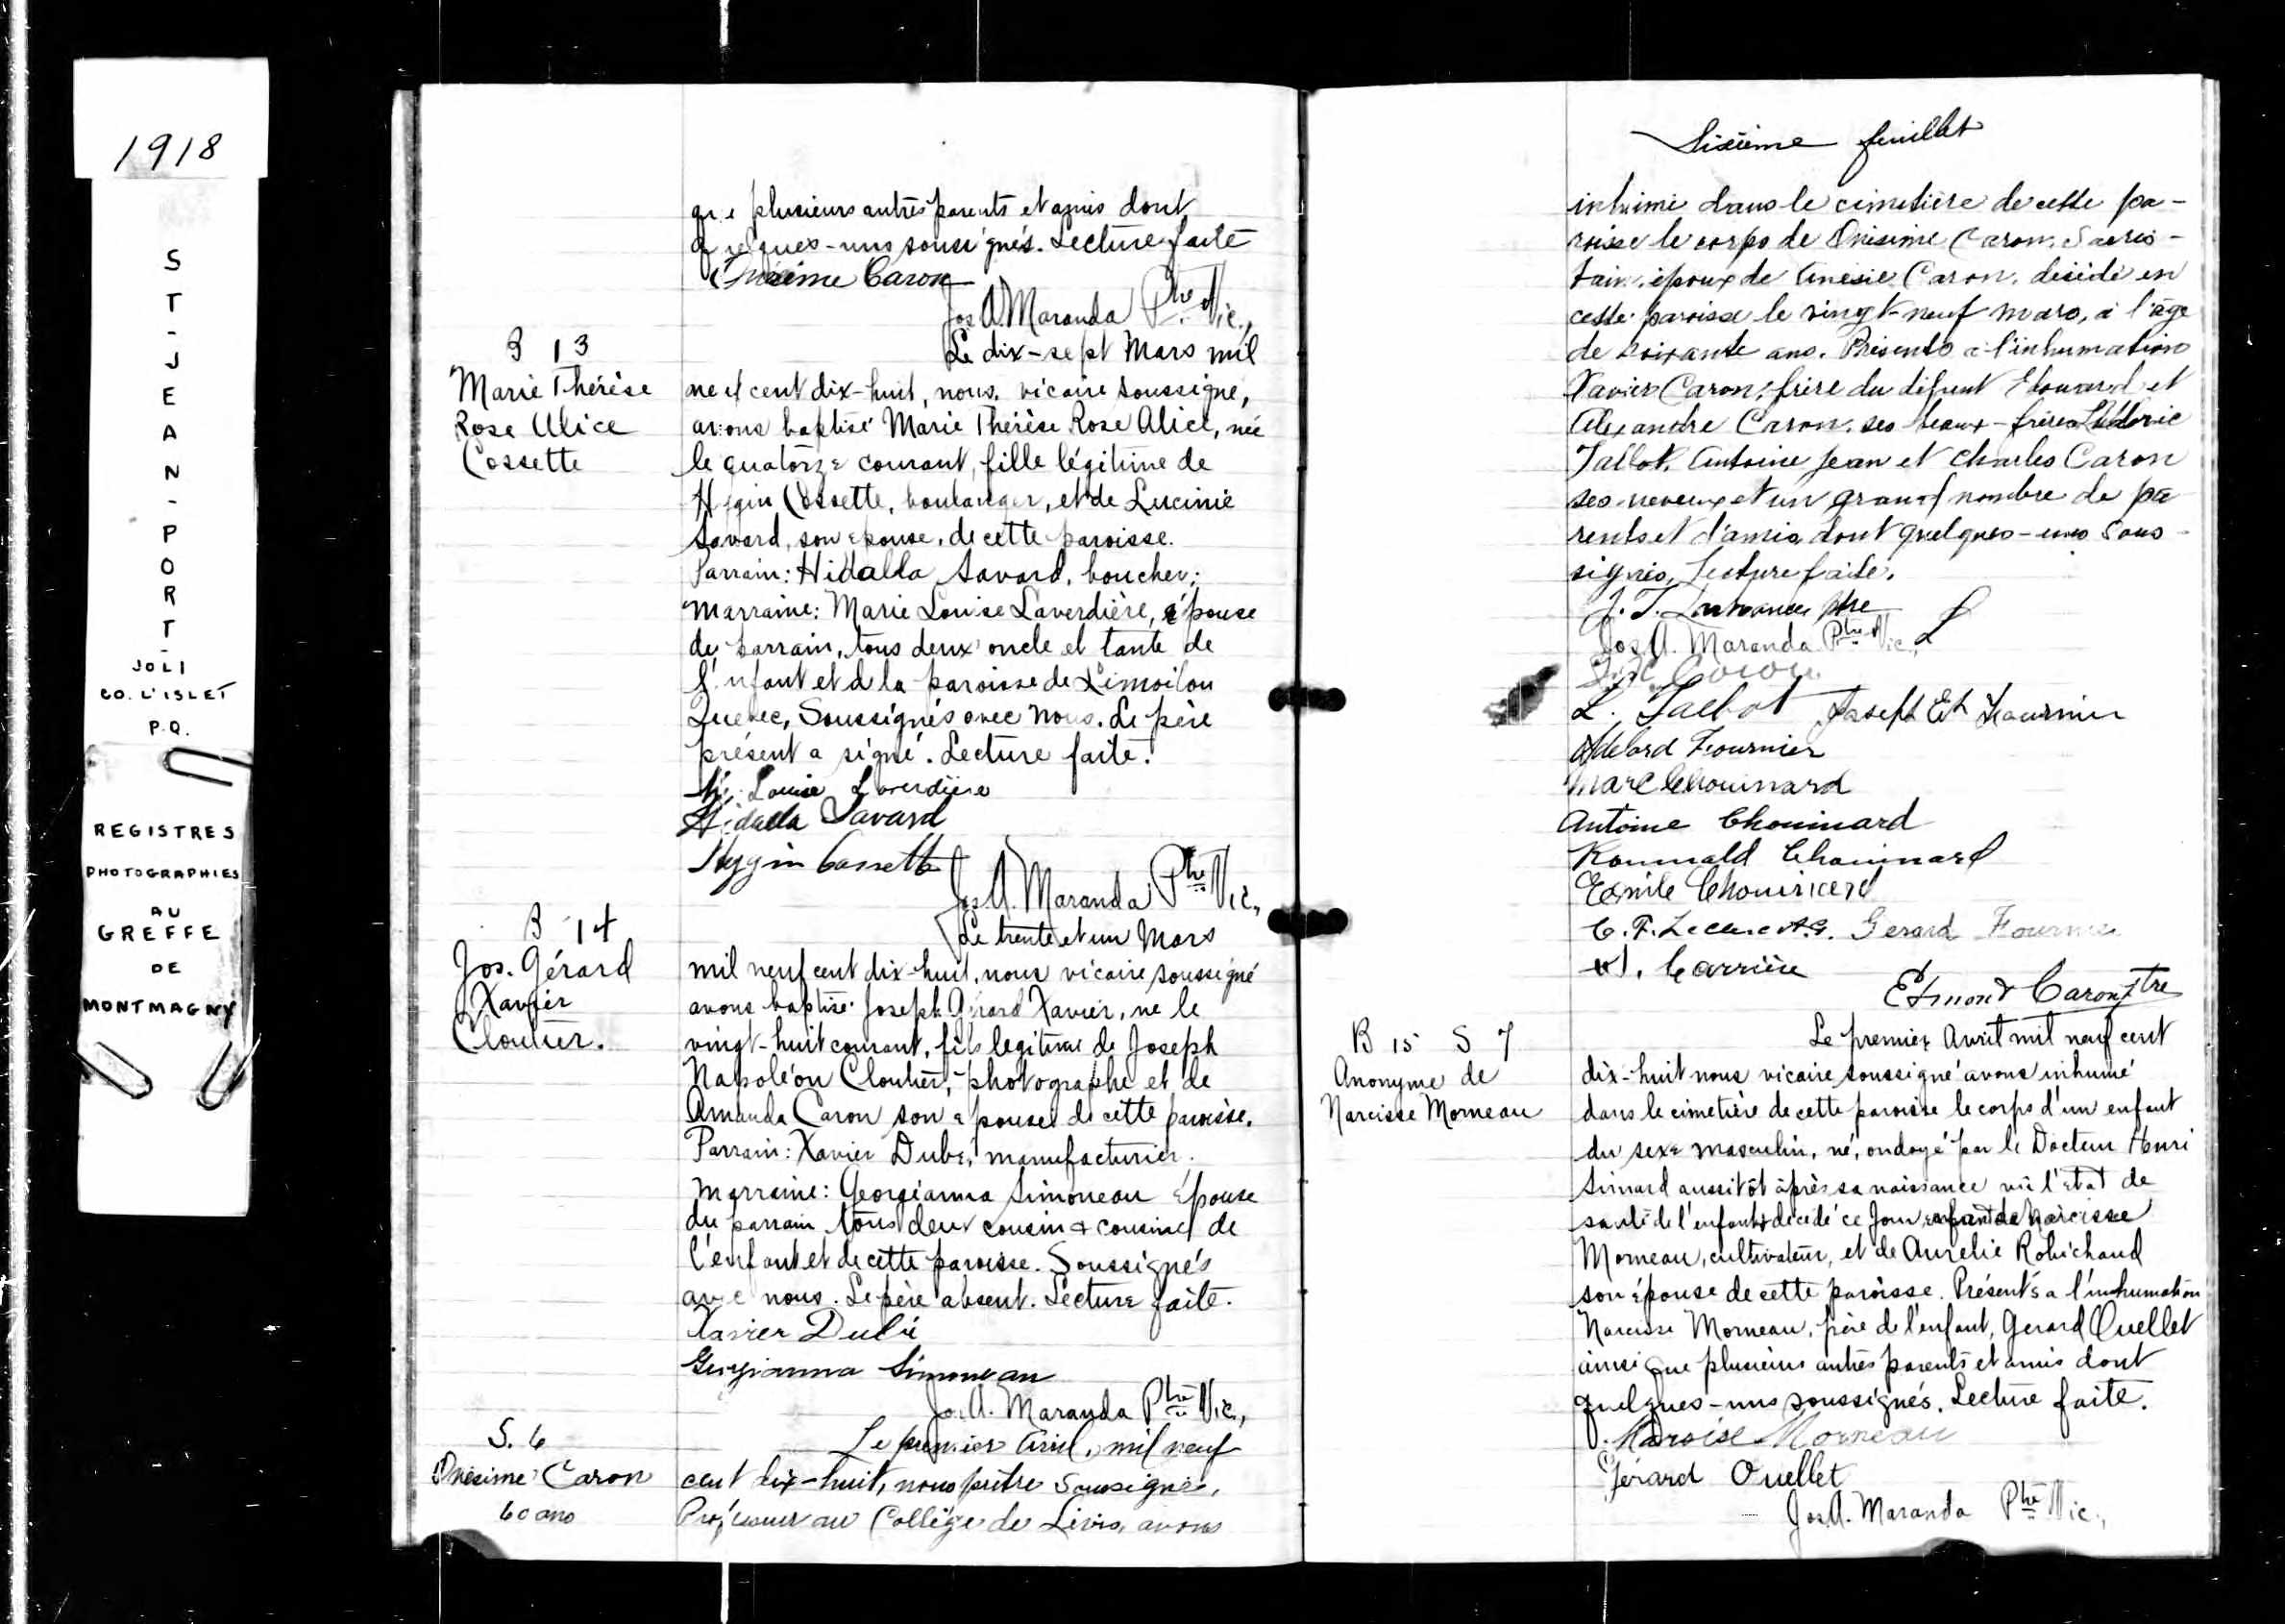 1918
ST-JEAN-PORT-
JOLI
CO. L'ISLET
P.Q.
REGISTRES
PHOTOGRAPHIES
AU
GREFFE
DE
MONTMAGNY
que plusieurs autres parents et amis dont
quelques-uns soussignés. Lecture faite
Onésime Caron
Jos. A. Maranda Ptre Vic.,
B 13
Marie Thérèse
Rose Alice
Cossette
Le dix-sept Mars mil
neuf cent dix-huit, nous, vicaire soussigné,
avons baptisé Marie Thérèse Rose Alice, née
le quatorze courant, fille légitime de
Hygin Cossette, boulanger, et de Lucinie
Savard, son épouse, de cette paroisse.
Parrain: Hidalla Savard, boucher;
Marraine: Marie Louise Laverdière, épouse
du parrain, tous deux oncle et tante de
l'enfant et d la paroisse de Limoilou
Quebec, Soussignés avec nous. Le père
présent a signé. Lecture faite.
M. Louise Laverdière
Hidalla Savard
Hygin Cossette
Jos. A. Maranda Ptre Vic.,
B 14
Jos. Gérard
Xavier
Cloutier.
Le trente et un Mars
mil neuf cent dix-huit, nous vicaire soussigné
avons baptisé Joseph Gérard Xavier, né le
vingt-huit courant, fils legitime de Joseph
Napoléon Cloutier, photographe et de
Amanda Caron son épouse de cette paroisse.
Parrain: Xavier Dubé, manufacturier.
Marraine: Georgianna Simoneau épouse
du parrain tous deux cousin & cousine de
l'enfant et de cette paroisse. Soussignés
avec nous. Le père absent. Lecture faite.
Xavier Dubé
Georgianna Simoneau
Jos. A. Maranda Ptre Vic.,
S. 6
Onésime Caron
60 ans
Le premier Avril, mil neuf
cent dix-huit, nous prêtre soussigné,
Professeur au Collège de Lévis, avons
Sixième feuillet
inhumé dans le cimetière de cette pa-
roisse le corps de Onésime Caron, Sacris-
tain, époux de Anésie Caron, décédé en
cette paroisse le vingt-neuf mars, à l'âge
de soixante ans. Présents à l'inhumation
Xavier Caron, frère du défunt Edouard et
Alexandre Caron, ses beaux-frères Ludovic
Talbot, Antoine Jean et Charles Caron
ses neveux et un grand nombre de pa
rents et d'amis dont quelques-uns sous-
signés, Lecture faite.
Jos. A. Maranda Ptre Vic.,
Caron
L. Talbot Joseph Et Fournier
Adelard Fournier
Marc Chouinard
Antoine Chouinard
Romuald Chouinard
Emile Chouinard
C. F. Leclerc A.G. Gerard Fournier
Carrière
Edmond Caron Ptre
B 15 S 7
Anonyme de
Narcisse Morneau
Le premier Avril mil neuf cent
dix-huit nous vicaire soussigné avons inhumé
dans le cimetière de cette paroisse le corps d'un enfant
du sexe masculin, né, ondoyé par le Docteur Henri
Simard aussitôt après sa naissance vu l'état de
santé de l'enfant & décédé ce jour enfant de Narcisse
Morneau, cultivateur, et de Aurelie Robichaud
son épouse de cette paroisse. Présents a l'inhumation
Narcisse Morneau, père de l'enfant, Gerard Ouellet
ainsi que plusieurs autres parents et amis dont
quelques-uns soussignés. Lecture faite.
Narcise Morneau
Gérard Ouellet
Jos. A. Maranda Ptre Vic.,